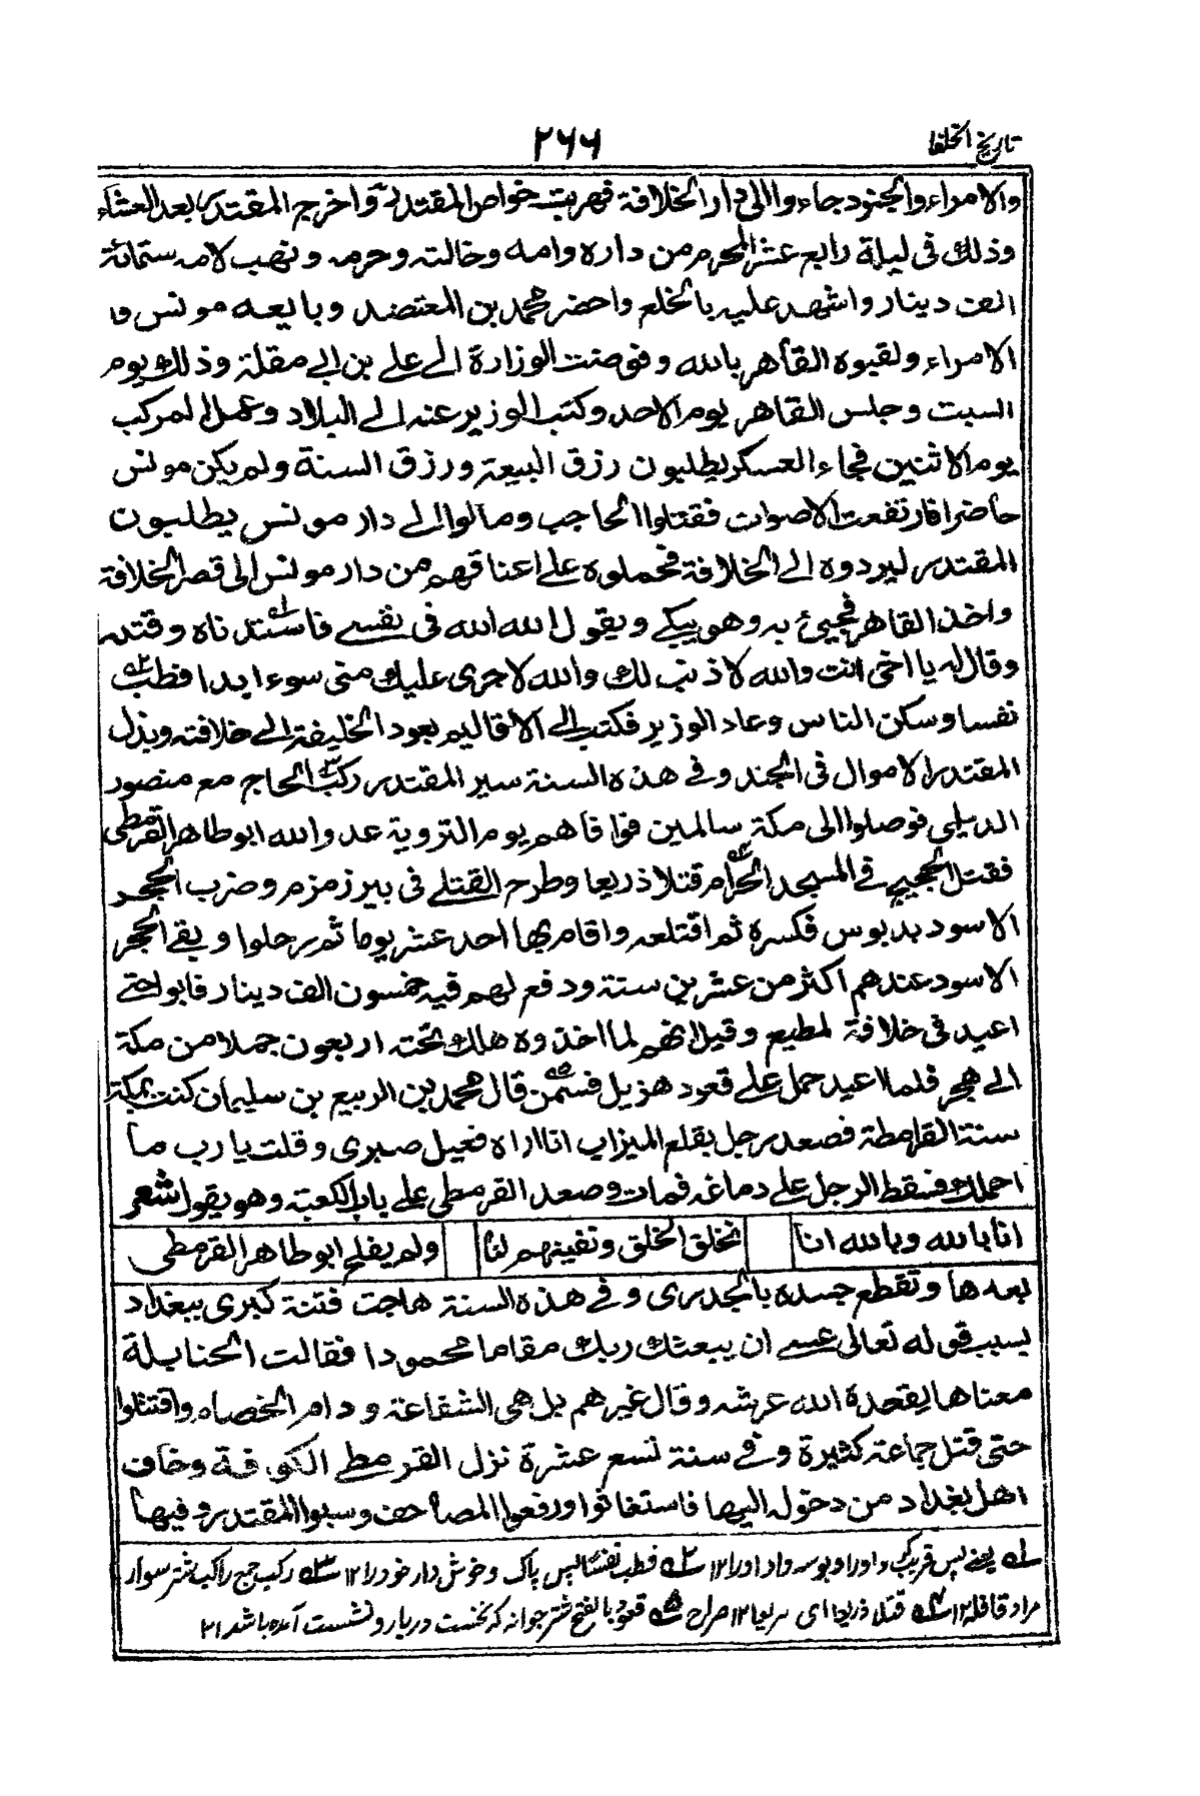 تاريخ الخلفا
۲۶۶
والامراء والجنود جاءوا الى دار الخلافة فهربت خواص المقتدر واخرج المقتدر بعد العشاء
وذلك فى ليلة رابع عشر المحرم من داره وامه وخالته وحرمه ونهب لامه ستمائة
الف دينار واشهد عليه بالخلع واحضر محمد بن المعتضد وبايعه مونس و
الامراء ولقبوه القاهر بالله وفوضت الوزارة الى على بن ابى مقلة وذلك يوم
السبت وجلس القاهر يوم الاحد وكتب الوزير عنه الى البلاد وعمل المركب
يوم الاثنين فجاء العسكر يطلبون رزق البيعة ورزق السنة ولم يكن مونس
حاضرا فارتفعت الاصوات فقتلوا الحاجب ومالوا الى دار مونس يطلبون
المقتدر ليردوه الى الخلافة فحملوه على اعناقهم من دار مونس الى قصر الخلافة
واخذ القاهر فجيئ به وهو يبكى ويقول الله الله فى نفسى فاستدناه وقبله
وقال له يا اخى انت والله لا ذنب لك والله لا جرى عليك منى سوء ابدا فطب
نفسا وسكن الناس وعاد الوزير فكتب الى الاقاليم بعود الخليفة الى خلافته وبذل
المقتدر الاموال فى الجند وفى هذه السنة سير المقتدر ركب الحاج مع منصور
الديلمى فوصلوا الى مكة سالمين فوافاهم يوم التروية عدو الله ابو طاهر القرمطى
فقتل الحجيج فى المسجد الحرام قتلا ذريعا وطرح القتلى فى بير زمزم وضرب الحجر
الاسود بدبوس فكسره ثم اقتلعه واقام بها احد عشر يوما ثم رحلوا وبقى الحجر
الاسود عندهم اكثر من عشرين سنة ودفع لهم فيه خمسون الف دينار فابوا حتى
اعيد فى خلافة لمطيع وقيل انهم لما اخذوه هلك تحته اربعون جملا من مكة
الى هجر فلما اعيد حمل على قعود هزيل فسمن قال محمد بن الربيع بن سليمان كنت بمكة
سنة القرامطة فصعد رجل يقلع الميزاب انا اراه فعيل صبرى وقلت يا رب ما
احملك فسقط الرجل على دماغه فمات وصعد القرمطى على باب الكعبة وهو يقول شعر
انا بالله وبالله انا يخلق الخلق وتفنيهم انا ولم يفلح ابو طاهر القرمطى
بعدها وتقطع جسده بالجدرى وفى هذه السنة هاجت فتنة كبرى ببغداد
بسبب قوله تعالى عسى ان يبعثك ربك مقاما محمودا فقالت الحنابلة
معناها يقعده الله عرشه وقال غيرهم بل هى الشفاعة ودام الخصام واقتتلوا
حتى قتل جماعة كثيرة وفى سنة تسع عشرة نزل القرمطى الكوفة وخاف
اهل بغداد من دخوله اليها فاستغاثوا ورفعوا المصاحف وسبوا المقتدر وفيها
له يعنے پس قريب كرد اورا و بوسه داد اورا ۱۲ ۲ه فطب نفسا پس پاك و خوش دار خود را ۱۲ ۳ه ركب جمع راكب شتر سوار
مراد قافله ۱۲ ۴ه قتلا ذريعا اى سريعا ۱۲ صراح ۵ه قعود بالفتح شتر جوانه كه نخست در بار و نشست آمده باشد ۱۲